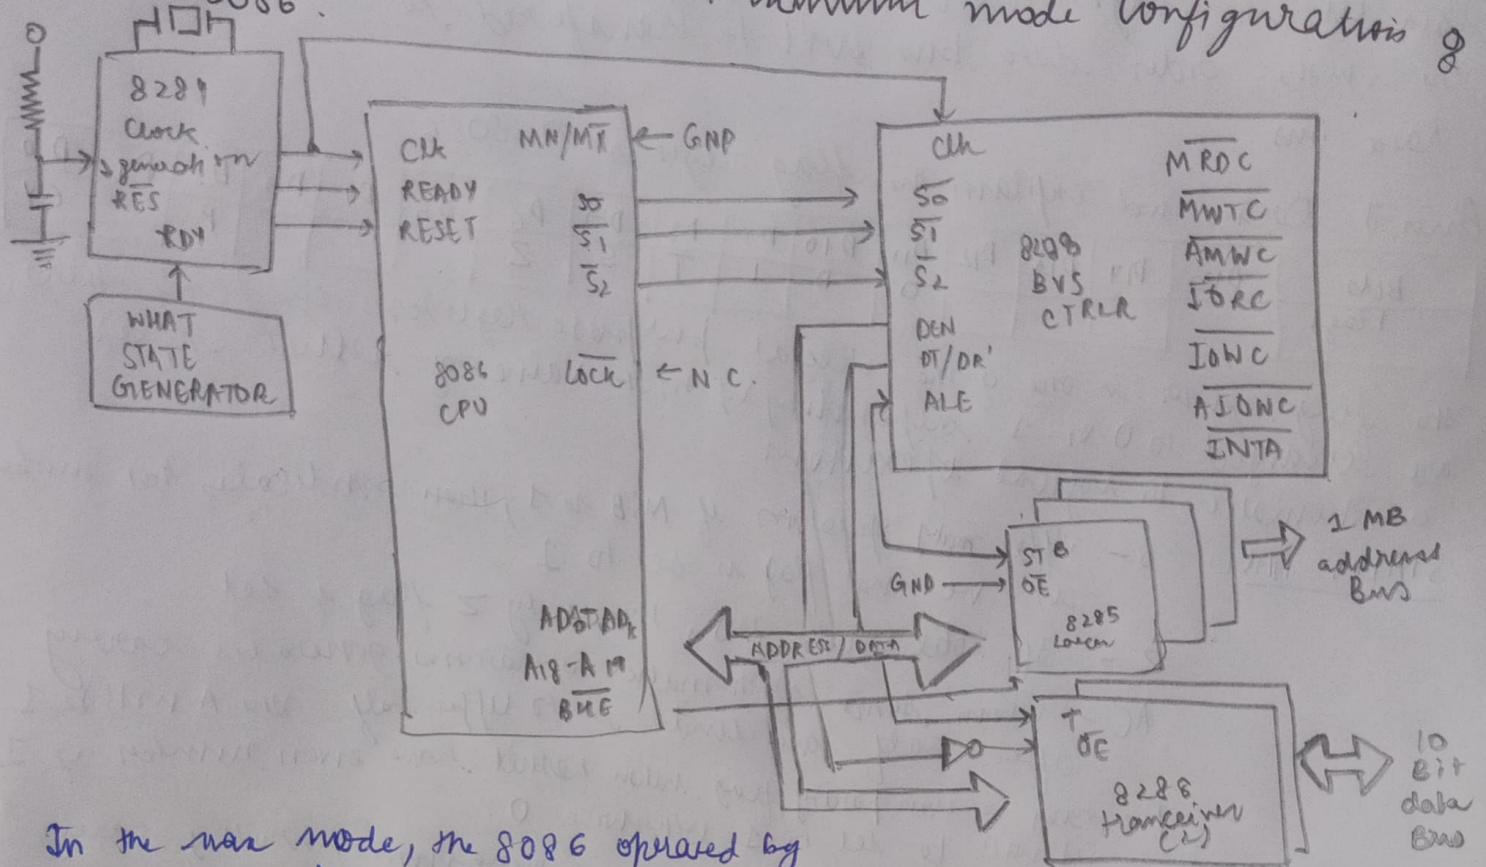 8086.
mode Configurations 8
8284
Clock
generation
RES
RDY
WHAT
STATE
GENERATOR
Clk
READY
RESET
MN/MX
GND
S0
S1
S2
8086
CPU
LOCK
N C.
A18-A19
BHE
Clk
S0
S1
S2
DEN
DT/DR'
ALE
8298
BUS
CTRLR
MRDC
MWTC
AMWC
IORC
IOWC
AIOWC
INTA
STB
GND
OE
8285
1 MB
address
Bus
ADDRESS/DATA
T
OE
8288
tranceiver
(2)
10
Bit
data
Bus
In the max mode, the 8086 operated by